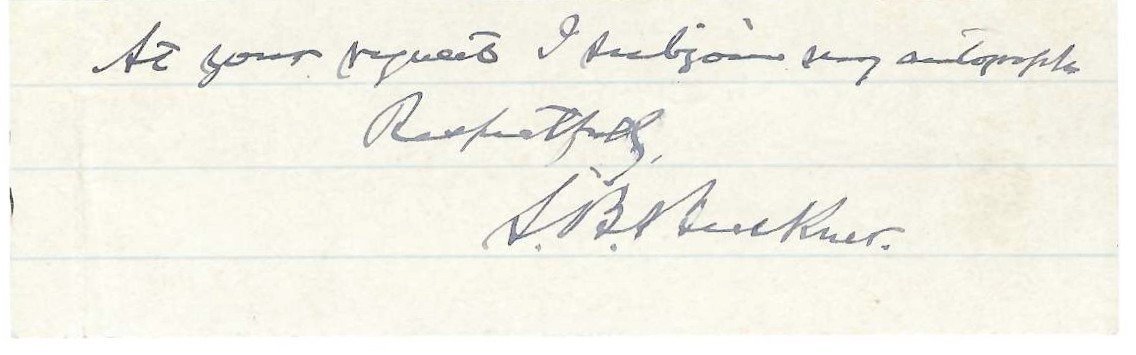 At your request I subjoin my autograph
Respectfully,
S. B. Buckner.